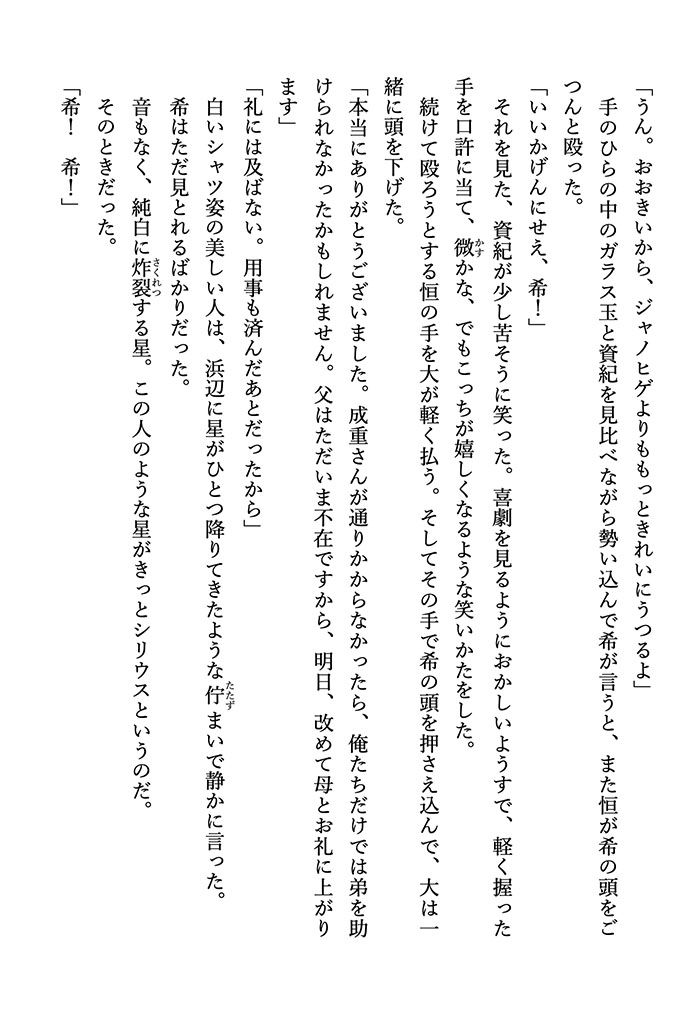 「うん。おおきいから、ジャノヒゲよりももっときれいにうつるよ」
　手のひらの中のガラス玉と資紀を見比べながら勢い込んで希が言うと、また恒が希の頭をご
つんと殴った。
「いいかげんにせえ、希！」
　それを見た、資紀が少し苦そうに笑った。喜劇を見るようにおかしいようすで、軽く握った
手を口許に当て、微かすかな、でもこっちが嬉しくなるような笑いかたをした。
　続けて殴ろうとする恒の手を大が軽く払う。そしてその手で希の頭を押さえ込んで、大は一
緒に頭を下げた。
「本当にありがとうございました。成重さんが通りかからなかったら、俺たちだけでは弟を助
けられなかったかもしれません。父はただいま不在ですから、明日、改めて母とお礼に上がり
ます」
「礼には及ばない。用事も済んだあとだったから」
　白いシャツ姿の美しい人は、浜辺に星がひとつ降りてきたような佇たたずまいで静かに言った。
　希はただ見とれるばかりだった。
　音もなく、純白に炸裂さくれつする星。この人のような星がきっとシリウスというのだ。
　そのときだった。
「希！　希！」